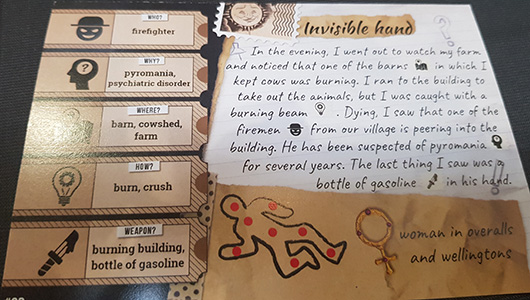 WHO?
firefighter
WHY?
pyromania,
psychiatric disorder
WHERE?
barn, cowshed,
farm
HOW?
burn, crush
WEAPON?
burning building,
bottle of gasoline
Invisible hand
In the evening, I went out to watch my farm
and noticed that one of the barns in which I
kept cows was burning. I ran to the building to
take out the animals, but I was caught with a
burning beam . Dying, I saw that one of the
firemen from our village is peering into the
building. He has been suspected of pyromania
for several years. The last thing I saw was a
bottle of gasoline in his hand.
woman in overalls
and wellingtons